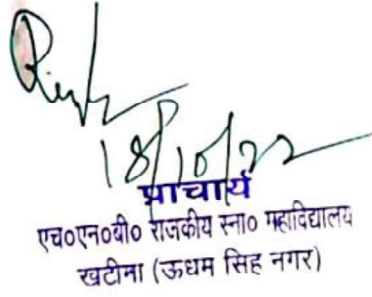 18/10/22
प्राचार्य
एच०एन०बी० राजकीय स्ना० महाविद्यालय
खटीमा (ऊधम सिंह नगर)